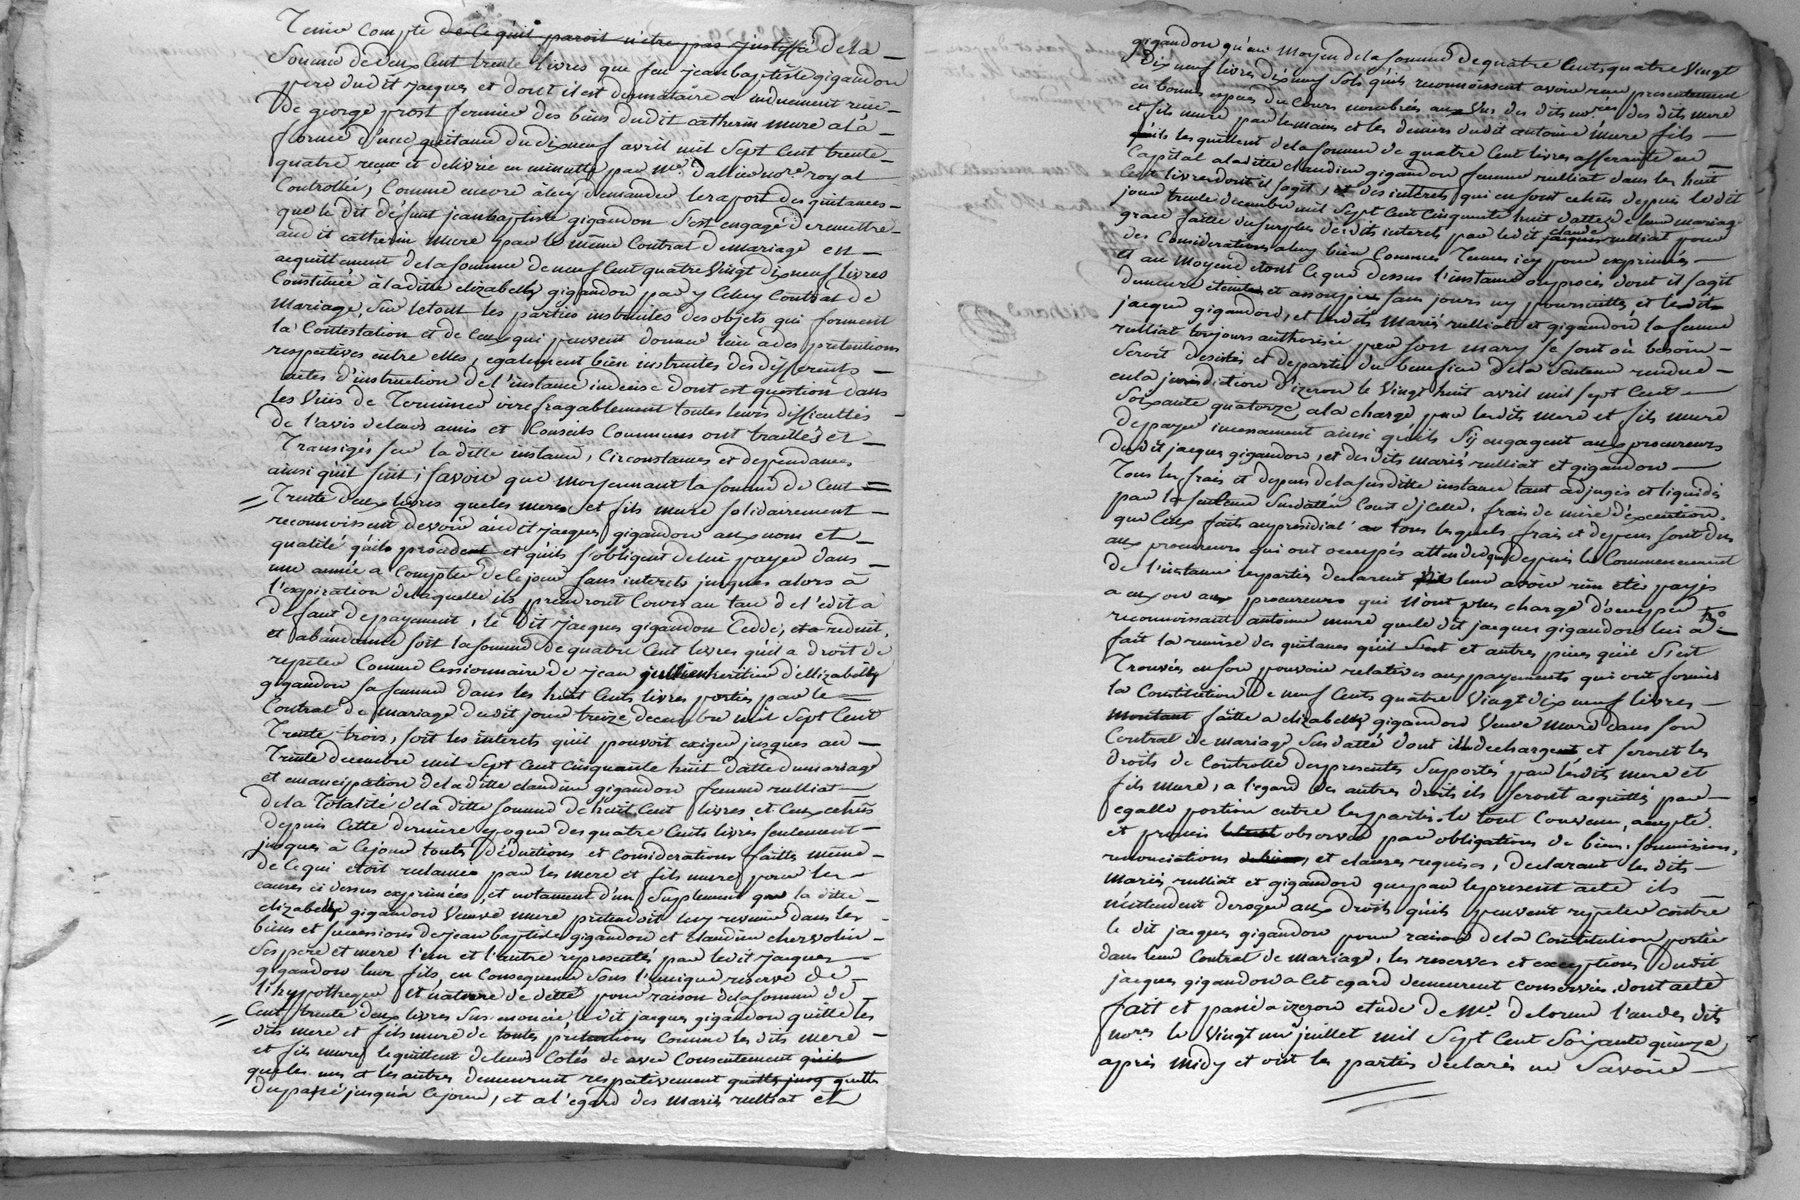 Tenir compte de ce quil paroit n'etre pas justiffié de la
Somme de deux Cent trente livres que feu jean baptiste gigandon
pere dudit jacques et dont il est donnataire a induement reçue
De george prost fermier des biens dudit catherin mure a la
forme d'une quitance du dixneuf avril mil Sept Cent trente
quatre reçue et delivrée en minutte par Me. dallier nore royal
Controllée, Comme encore à luy demander le raport des quitances
que le dit défunt jean baptiste gigandon s'est engagé de remettre
audit catherin mure par le même Contrat de mariage en
acquittement de la somme de neuf Cent quatre vingt dixneuf livres
Constituée à la ditte elizabeth gigandon par y Celuy Contrat de
Mariage, Sur le tout les parties instruites des objets qui forment
la Contestation et de Ceux qui peuvent donner lieu a des pretentions
respectives entre elles, egalement bien instruites des differents
actes d'instruction de l'instance indecise dont est question dans
les vues de Terminer irrefragablement toutes leurs difficultés
de l'avis de leurs amis et Conseils Communs ont traittés et
Transigés sur la ditte instance, Circonstances et dependances
ainsi quil suit; savoir que moyennant la somme de Cent
Trente deux livres que les mere et fils mure solidairement
reconnoissent devoir audit jacques gigandon aux nom et
qualité quils procedent et quils s'obligent de lui payer dans
une année a Compter de Ce jour sans interets jusques alors à
l'expiration de laquelle ils prendront Cours au taux de l'edit a
défaut de payement, le dit jacques gigandon Cedde, et a reduit,
et abandonné soit la somme de quatre Cent livres quil a droit de
repeter Comme Cessionnaire de jean jullien heritier d'ellizabeth
gigandon sa femme dans les huit Cents livres portés par le
Contrat de mariage dudit jour treize decembre mil Sept Cent
Trente trois, soit les interets quil pouvoit exiger jusques au
Trente decembre mil Sept Cent cinquante huit datte du mariage
et emancipation de la ditte claudine gigandon femme rulliat
de la Totalité de la ditte somme de huit Cent livres et Ceux echus
depuis Cette derniere epoque des quatre Cents livres seulement
jusques à Ce jour toutes déductions et considerations faittes même
de Ce qui étoit reclamé par les mere et fils mure pour les
causes ci dessus exprimées, et notament d'un Supplement que la ditte
elizabeth gigandon veuve mure prétendoit luy revenir dans les
biens et successions de jean baptiste gigandon et claudine chervolin
Ses pere et mere l'un et l'autre representés par ledit jacques
gigandon leur fils, en Consequence Sous l'unique reserve de
l'hypotheque et nature de dette pour raison de la somme de
Cent trente deux livres sus enoncée, ledit jacques gigandon quitte les
dits mere et fils mure de toutes prétentions Comme les dits mere
et fils mure le quittent de leurs Cotés de avec Consentement quils
que les uns et les autres demeurent respectivement quittes jusq quittes
du passé jusqu'a Ce jour, et a l'egard des mariés rulliat et
gigandon qu'au moyen de la somme de quatre Cents quatre vingt
Dix neuf livres dix neuf sols quils reconnoissent avoir reçu presentement
en bonnes especes du Cours nombrées aux vues des dits nores des dits mere
et fils mure par les mains et les deniers dudit antoine mure fils
quils les quittent de la somme de quatre Cent livres afferante en
Capital a la ditte claudine gigandon femme rulliat dans les huit
Cent livres dont il sagit, et des interets qui en sont echus depuis ledit
jour trente decembre mil Sept Cent cinquante huit datte de leur mariage
grace faitte du surplus desdits interets par ledit jacques claude rulliat pour
des Considerations a luy bien Connues Tenues icy pour exprimées
et au moyen de tout Ce que dessus l'instance ou procès dont il sagit
demeure eteinte et assoupie sans jours ny poursuittes et ledit
jacques gigandon, et lesdits Mariés rulliat et gigandon, la femme
rulliat toujours authorisée par son mary se sont où besoin
Seroit desistés et departis du benefice de la Sentence rendue
en la jurisdiction d'izeron le Vingt huit avril mil sept Cent
Soixante quatorze, a la charge par lesdits mere et fils mure
de payer incessament ainsi quils s'y engagent aux procureurs
dudit jacques gigandon, et des dits mariés rulliat et gigandon
Tous les frais et depens de la susditte instance tant adjugés et liquidés
par la sentence Susdattée Cout d'jCelle, frais de mise d'execution,
que Ceux faits au presidial a tous lesquels frais et depens sont dus
aux procureurs qui ont occupés attendu que depuis le Commencement
de l'instance les parties declarent leur avoir rien etés payés
a eux ou aux procureurs qui n'ont plus charge d'occuper
reconnoissant antoine mure que le dit jacques gigandon lui a
fait la remise des quitances quil s'est et autres pieces quil s'est
Trouvées en son pouvoir relatives aux payements qui ont formés
la Constitution de neuf Cents quatre vingt dix neuf livres
montant faitte a elizabeth gigandon Veuve mure dans son
Contrat de mariage Susdatté dont ils dechargent et seront les
droits de Controlle des presentes Suportés par lesdits mere et
fils mure, a l'egard des autres droits ils seront acquittés par
egalle portion entre les parties, le tout Convenu, accepté
et promis observer par obligations de biens, soumissions,
renonciations, et clauses requises, declarant les dits
Mariés rulliat et gigandon que par le present acte ils
n'entendent deroger aux droits quils peuvent repeter contre
le dit jacques gigandon pour raison de la Constitution portée
dans leur Contrat de mariage, les reserves et exceptions dudit
jacques gigandon a Cet egard demeurent conservées, dont acte
fait et passé a izeron etude de Me. delorme l'un des dits
nores le Vingt un juillet mil Sept Cent Soixante quinze
après midy et ont les parties declarés ne Savoir